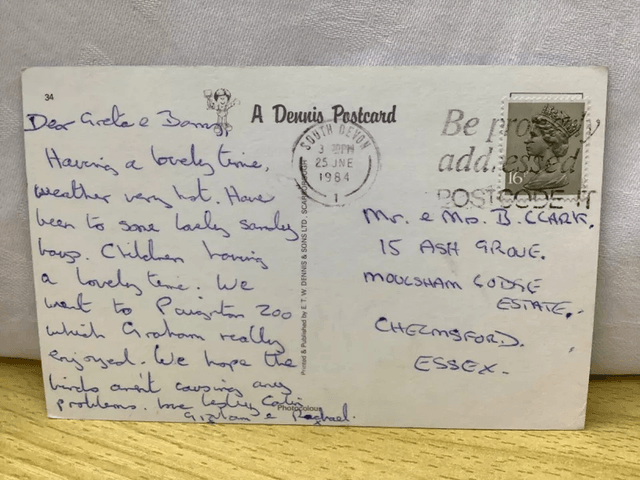 34
A Dennis Postcard
Dear Greta & Barry,
Having a lovely time,
weather very hot. Have
been to some lovely sandy
bays. Children having
a lovely time. We
went to Paignton Zoo
which Graham really
enjoyed. We hope the
birds aren't causing any
problems. love Lesley Colin
Graham & Rachael.
Photocolour
Printed & Published by E. T. W. DENNIS & SONS LTD., SCARBOROUGH
SOUTH DEVON
PM
25 JNE
1984
1
Be properly
addressed
POSTCODE IT
16
Mr. & Mrs. B. CLARK.
15 ASH GROVE.
MOULSHAM LODGE
ESTATE.
CHELMSFORD.
ESSEX.